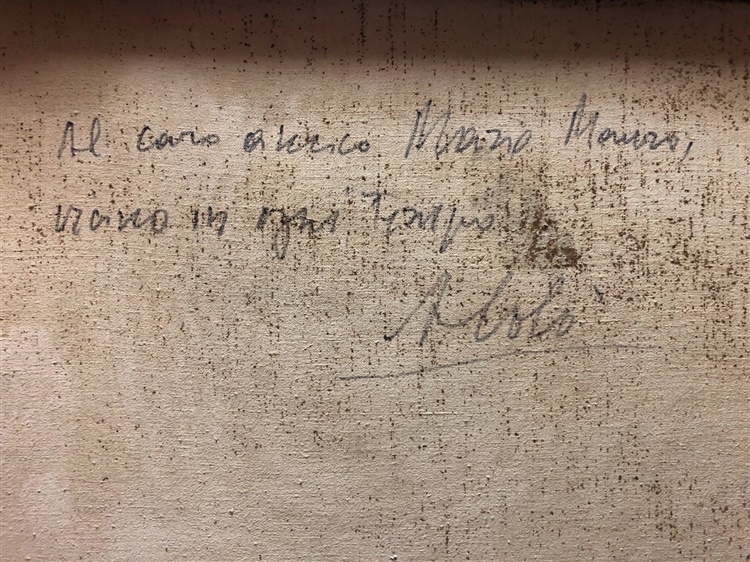 Al caro amico Mario Mauro,
vicino in ogni tempo